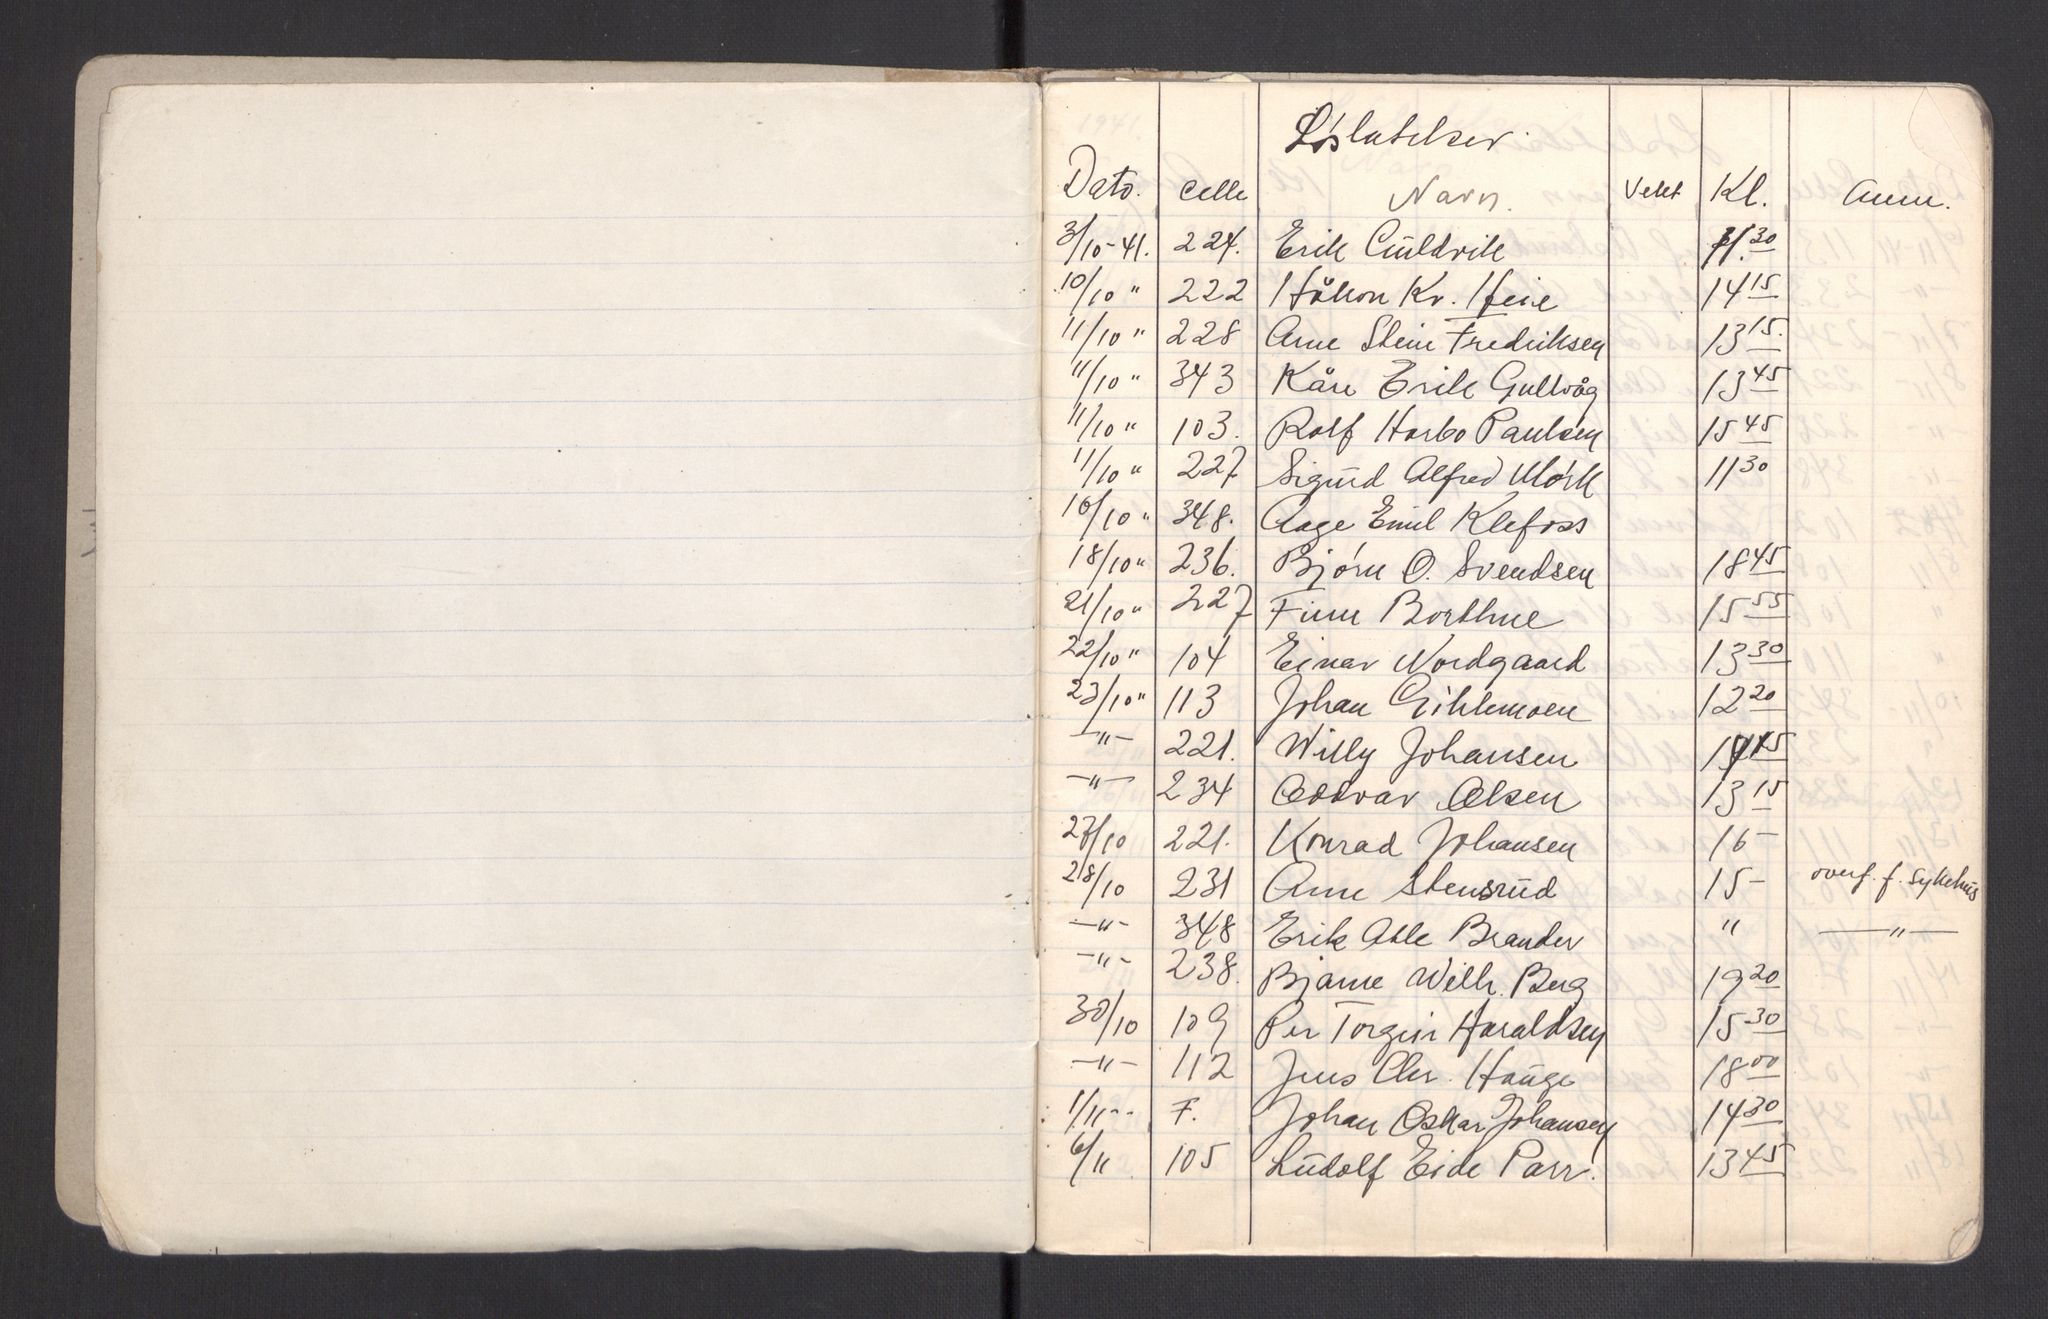 Løslatelser.
Dato. Celle Navn. Vekt Kl. Anm.
3/10-41. 224. Erik 11.30
10/10 " 222 Håkon Kr. Heie 14 15
11/10 " 228 Arne Stein Fredriksen 13 15.
11/10 " 343 Kåre Erik Gullvåg 13 45
11/10 " 103. Rolf Harbo Paulsen 15 45
11/10 " 227 Sigurd Alfred Mørk 11 30
16/10 " 348. Aage Emil Klefoss
18/10 " 236. Bjørn O. Svendsen 18 45
21/10 " 227 Finn Borthne 15 55
22/10 " 104 Einar Nordgaard 13 30
23/10 " 113 Johan 12 20
—"— 221. Willy Johansen
—"— 234 Oddvar Olsen 13 15
27/10 221. Konrad Johansen 16 —
28/10 231 Arne Stensrud 15 — overf. f. Sykehus
—"— 348 Erik Atle Brander " —"—
—"— 238. Bjarne Wilh. Berg 19 20
30/10 109 Per Torgeir Haraldsen 15 30
—"— 112 Jens Chr. Hauge 18 00
1/11 -- F. Johan Oskar Johansen 14 30
6/11 105 Ludolf Eide Parr. 13 45